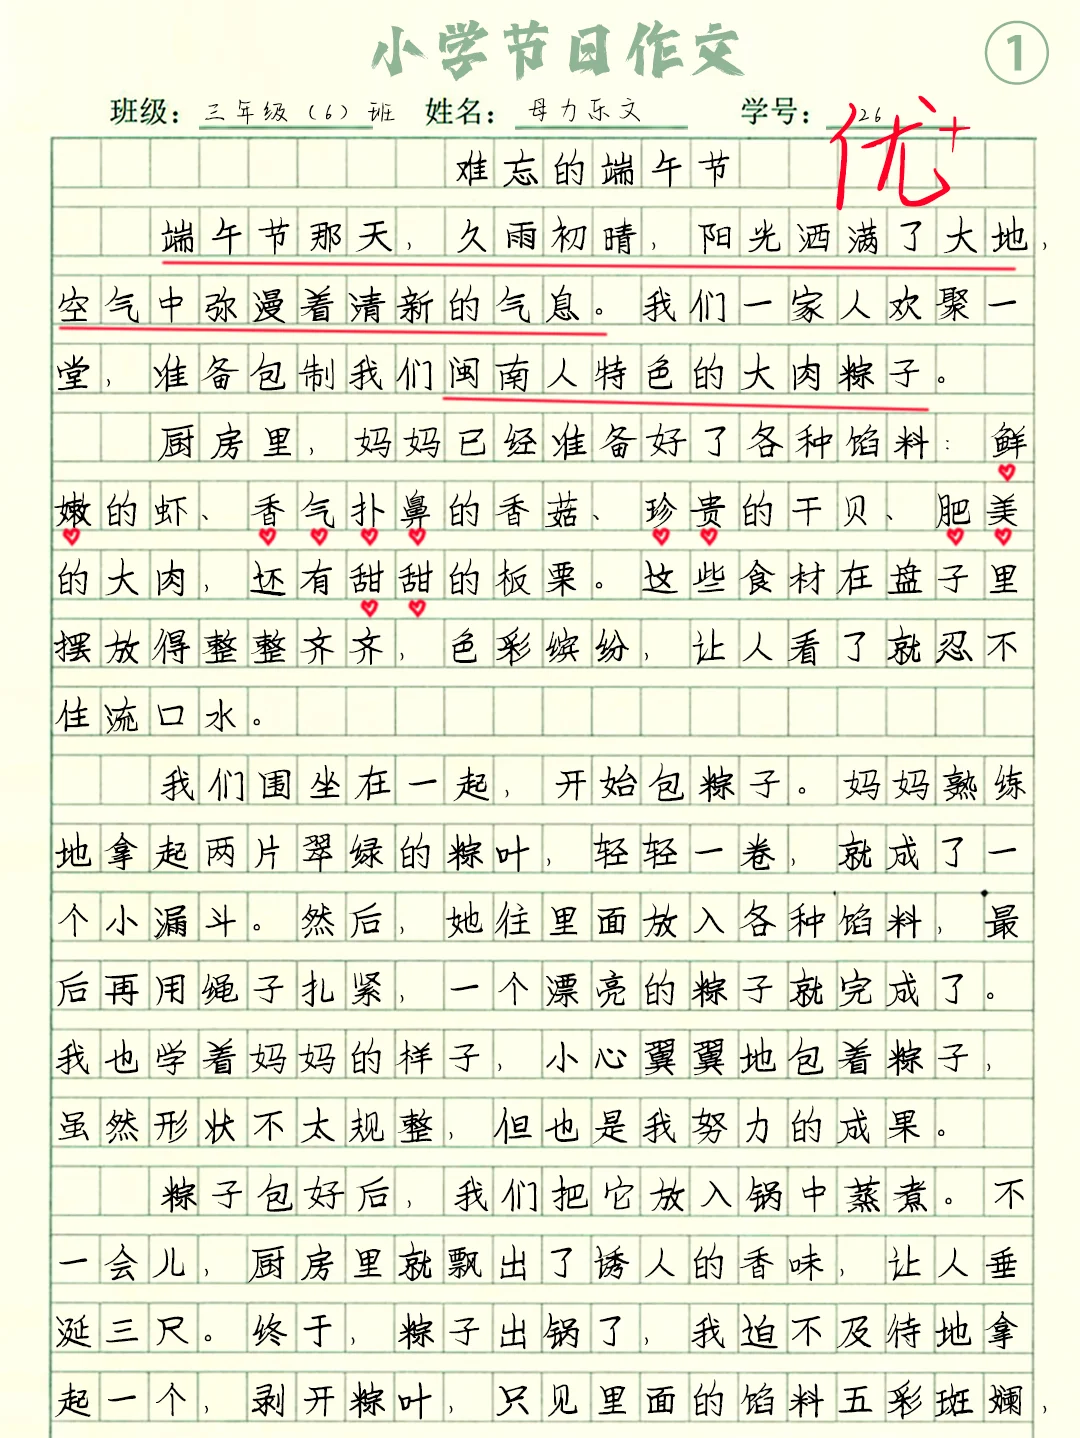 小学节日作文
1
班级：三年级（6）班 姓名：母力乐文 学号：26
优+
难忘的端午节
端午节那天，久雨初晴，阳光洒满了大地，
空气中弥漫着清新的气息。我们一家人欢聚一
堂，准备包制我们闽南人特色的大肉粽子。
厨房里，妈妈已经准备好了各种馅料：鲜
嫩的虾、香气扑鼻的香菇、珍贵的干贝、肥美
的大肉，还有甜甜的板栗。这些食材在盘子里
摆放得整整齐齐，色彩缤纷，让人看了就忍不
住流口水。
我们围坐在一起，开始包粽子。妈妈熟练
地拿起两片翠绿的粽叶，轻轻一卷，就成了一
个小漏斗。然后，她往里面放入各种馅料，最
后再用绳子扎紧，一个漂亮的粽子就完成了。
我也学着妈妈的样子，小心翼翼地包着粽子，
虽然形状不太规整，但也是我努力的成果。
粽子包好后，我们把它放入锅中蒸煮。不
一会儿，厨房里就飘出了诱人的香味，让人垂
涎三尺。终于，粽子出锅了，我迫不及待地拿
起一个，剥开粽叶，只见里面的馅料五彩斑斓，